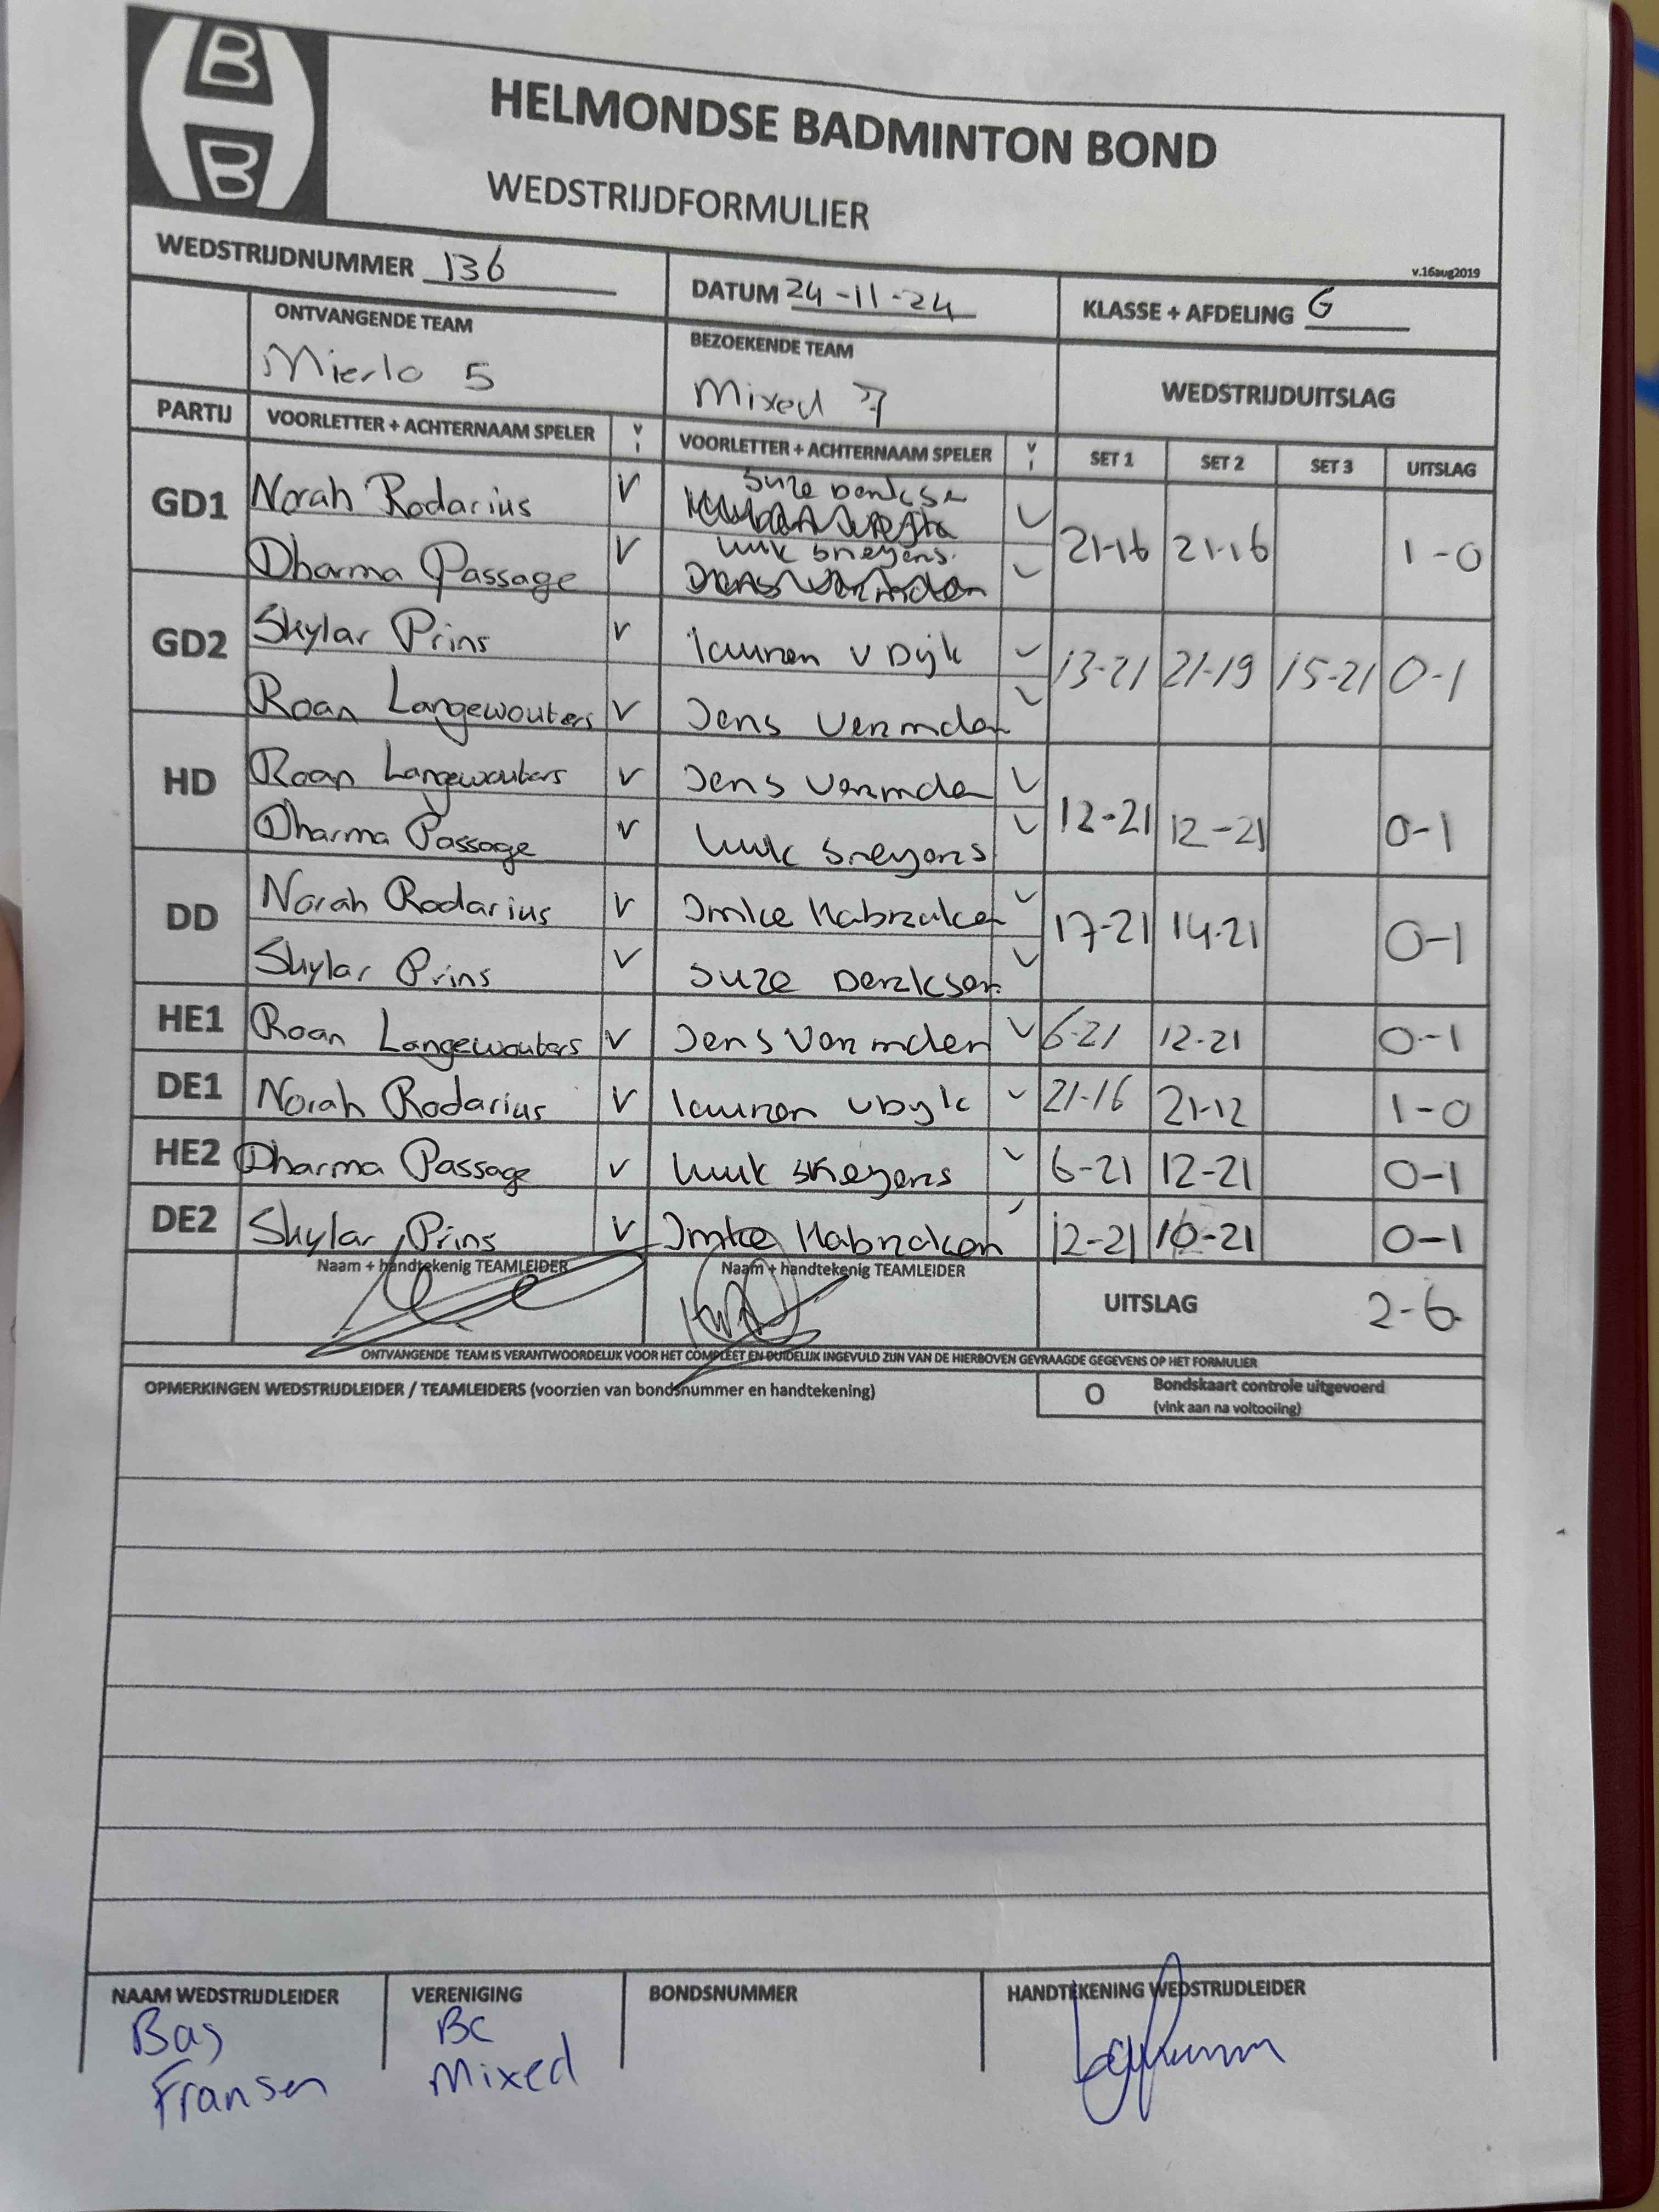 B
B
HELMONDSE BADMINTON BOND
WEDSTRIJDFORMULIER
v.16aug2019
WEDSTRIJDNUMMER 136 DATUM 24-11-24 KLASSE + AFDELING G
ONTVANGENDE TEAM BEZOEKENDE TEAM WEDSTRIJDUITSLAG
Mierlo 5 Mixed 7
PARTIJ VOORLETTER + ACHTERNAAM SPELER V I VOORLETTER + ACHTERNAAM SPELER V I SET 1 SET 2 SET 3 UITSLAG
GD1 Norah Rodarius V Suze Derksen V 21-16 21-16 1-0
Dharma Passage V Luuk V
GD2 Skylar Prins V Lauren v Dijk V 13-21 21-19 15-21 0-1
Roan Langewouters V Jens V
HD Roan Langewouters V Jens V 12-21 12-21 0-1
Dharma Passage V Luuk V
DD Norah Rodarius V Imke Habraken V 17-21 14-21 0-1
Skylar Prins V Suze Derksen V
HE1 Roan Langewouters V Jens V 6-21 12-21 0-1
DE1 Norah Rodarius V Lauren v Dijk V 21-16 21-12 1-0
HE2 Dharma Passage V Luuk V 6-21 12-21 0-1
DE2 Skylar Prins V Imke Habraken 12-21 10-21 0-1
Naam + handtekenig TEAMLEIDER Naam + handtekenig TEAMLEIDER UITSLAG 2-6
ONTVANGENDE TEAM IS VERANTWOORDELIJK VOOR HET COMPLEET EN DUIDELIJK INGEVULD ZIJN VAN DE HIERBOVEN GEVRAAGDE GEGEVENS OP HET FORMULIER
OPMERKINGEN WEDSTRIJDLEIDER / TEAMLEIDERS (voorzien van bondsnummer en handtekening) O Bondskaart controle uitgevoerd
(vink aan na voltooiing)
NAAM WEDSTRIJDLEIDER VERENIGING BONDSNUMMER HANDTEKENING WEDSTRIJDLEIDER
Bas BC
Fransen Mixed